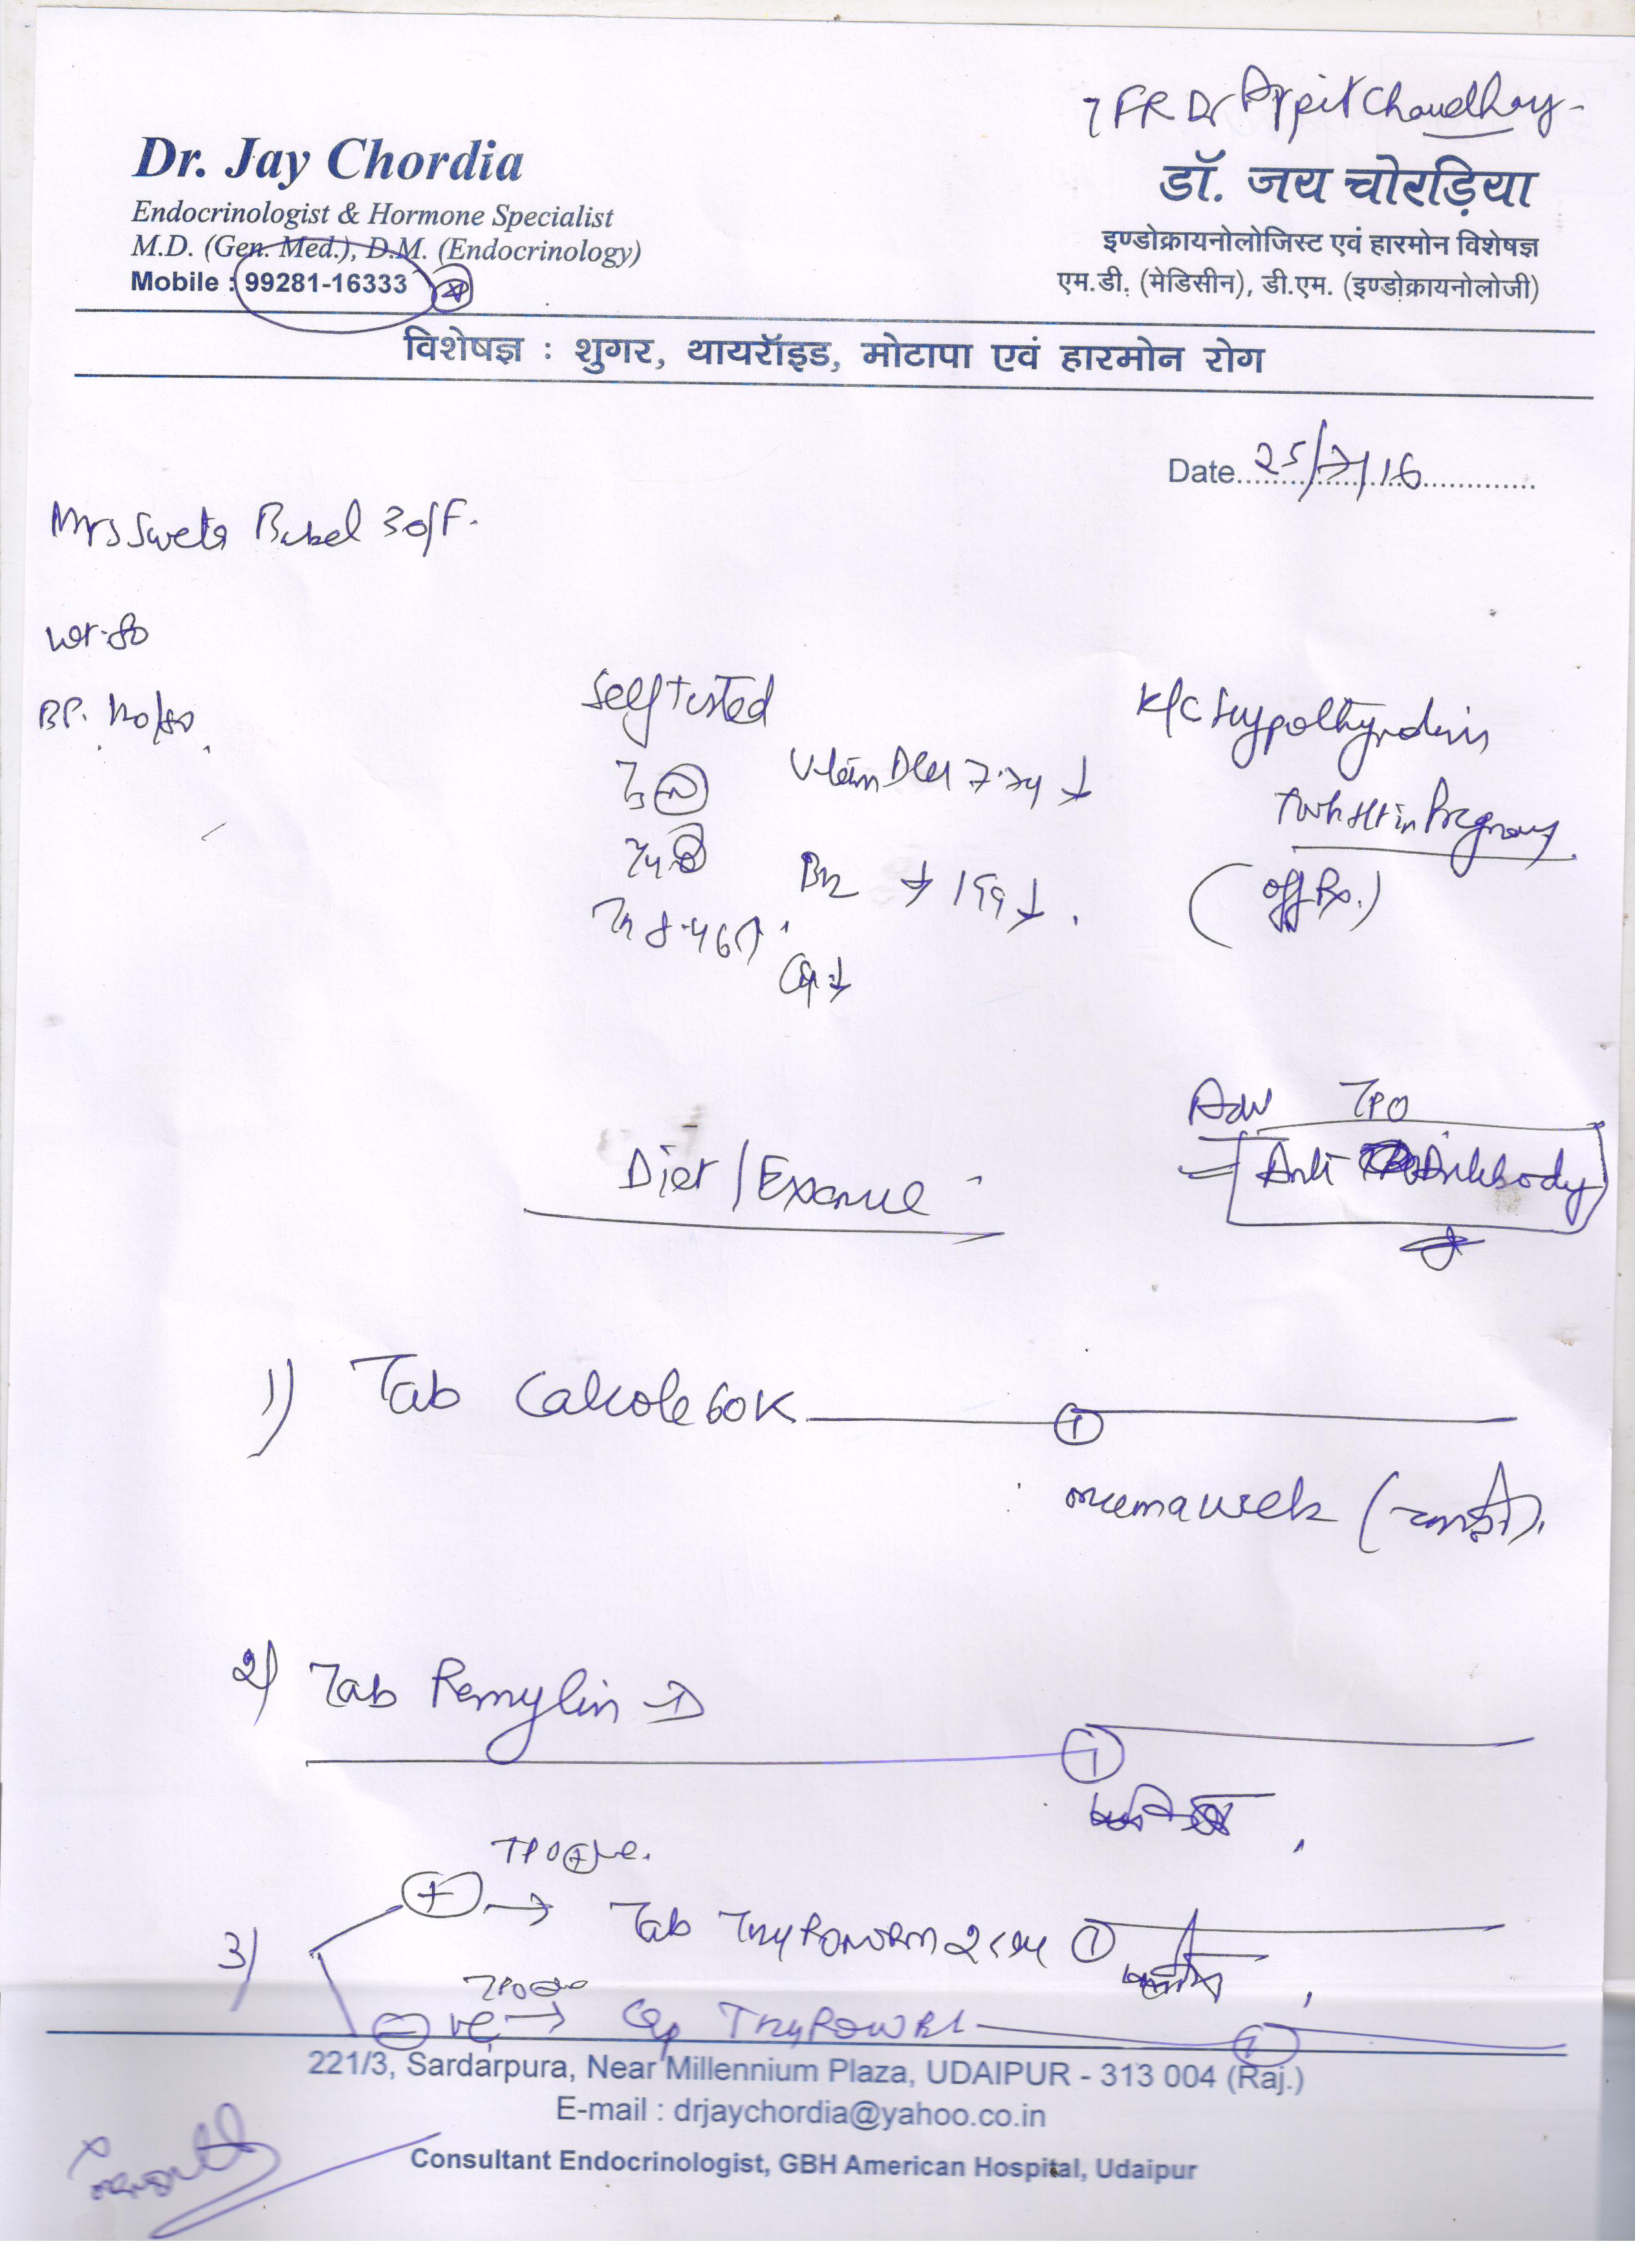 FR Dr Arpit Choudhary
Dr. Jay Chordia
Endocrinologist & Hormone Specialist
M.D. (Gen. Med.), D.M. (Endocrinology)
Mobile : 99281-16333
डॉ. जय चोरड़िया
इण्डोक्रायनोलोजिस्ट एवं हारमोन विशेषज्ञ
एम.डी. (मेडिसीन), डी.एम. (इण्डोक्रायनोलोजी)
विशेषज्ञ : शुगर, थायरॉइड, मोटापा एवं हारमोन रोग
Date 25/7/16
Mrs Sweta Babel 30/F.
wt. 80
BP. 120/80
Self Tested
T3 N
T4
8.46 ↑
7.74 ↓
B12 → 199 ↓
K/C Hypothyroidism
in Pregnancy
(off Rx.)
Adv TPO
Anti Antibody
Diet / Exercise
1) Tab Calcirol 60K 1
once in a week
2) Tab Remylin D
1
3) + TPO +ve → Tab Thyronorm 25 1
TPO -ve → Cap 1
221/3, Sardarpura, Near Millennium Plaza, UDAIPUR - 313 004 (Raj.)
E-mail : drjaychordia@yahoo.co.in
Consultant Endocrinologist, GBH American Hospital, Udaipur